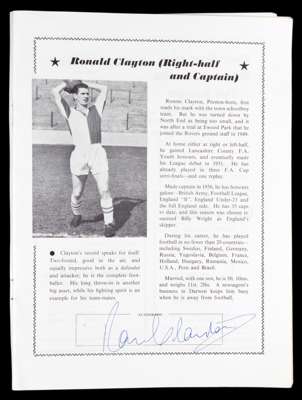 Ronald Clayton (Right-half
and Captain)
Ronnie Clayton, Preston-born, first
made his mark with the town schoolboy
team. But he was turned down by
North End as being too small, and it
was after a trial at Ewood Park that he
joined the Rovers ground staff in 1949.
At home either at right or left-half,
he gained Lancashire County F.A.
Youth honours, and eventually made
his League debut in 1951. He has
already played in three F.A. Cup
semi-finals—and one replay.
Made captain in 1956, he has honours
galore—British Army, Football League,
England "B", England Under-23 and
the full England side. He has 35 caps
to date, and this season was chosen to
succeed Billy Wright as England's
skipper.
During his career, he has played
football in no fewer than 20 countries—
including Sweden, Finland, Germany,
Russia, Yugoslavia, Belgium, France,
Holland, Hungary, Rumania, Mexico,
U.S.A., Peru and Brazil.
Married, with one son, he is 5ft.
and weighs 11st. A newsagent's
business in Darwen keeps him busy
when he is away from football.
● Clayton's record speaks for itself!
Two-footed, good in the air, and
equally impressive both as a defender
and attacker; he is the complete foot-
baller. His long throw-in is another
big asset, while his fighting spirit is an
example for his team-mates.
AUTOGRAPH
Ron Clayton